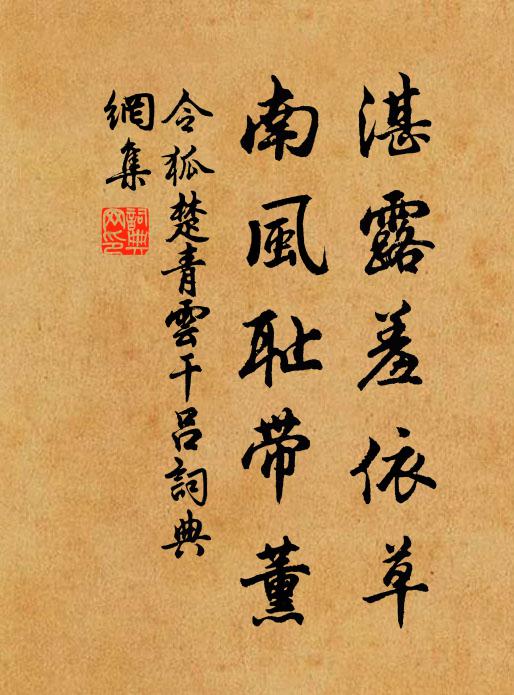 湛露羞依草
南風耻带薰
令狐楚青雲干吕詞典
網集
詞典
网印